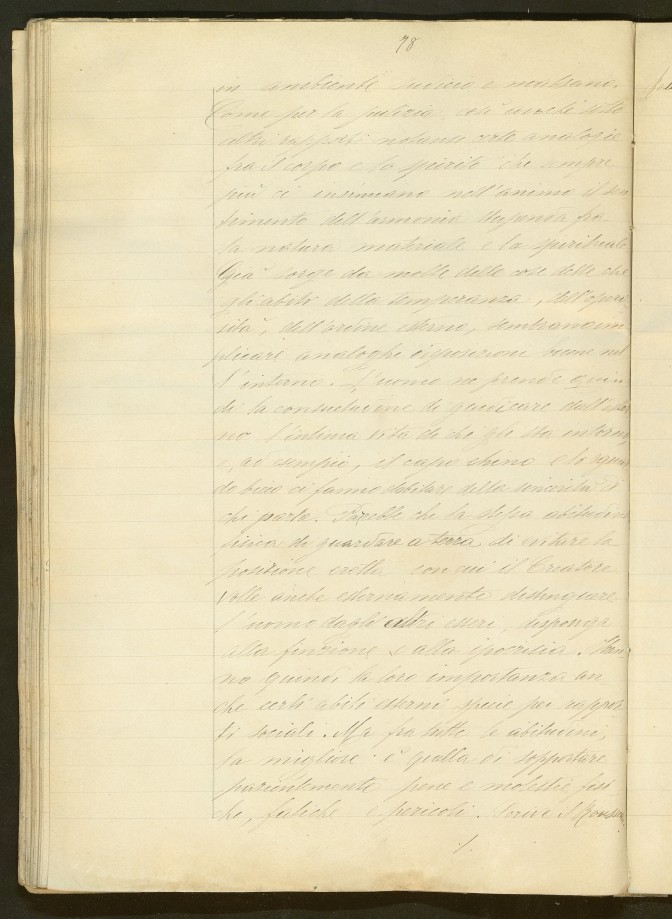 78
in ambienti sudicio e malsano.
Come per la pulizia, così anche sotto
altri rapporti notansi certe analogie
fra il corpo e lo spirito che sempre
più ci insinuano nell'animo il sen
timento dell'armonia stupenda fra
la natura materiale e la spirituale
Già sorge da molte delle cose dette che
gli abiti della temperanza, dell'operi
sità, dell'ordine esterno, sembrano im
plicare analoghe disposizioni buone nel
l'interno. L'uomo ne prende quin
di la consuetudine di giudicare dall'ester
no l'intima vita di chi gli sta intorno
e, ad esempio, il capo chino e lo sguar
do bieco ci fanno dubitare della sincerità di
chi parla. Parebbe che la stessa abitudine
fisica di guardare a terra di evitare la
posizione eretta con cui il Creatore
volle anche esternamente distinguere
l'uomo dagli altri esseri, disponga
alla finzione e alla ipocrisia. Han
no quindi la loro importanza an
che certi abiti esterni specie pei rappor
ti sociali. Ma fra tutte le abitudini,
la migliore è quella di sopportare
pazientemente pene e molestie fisi
che, fatiche e pericoli. Scrive
./.